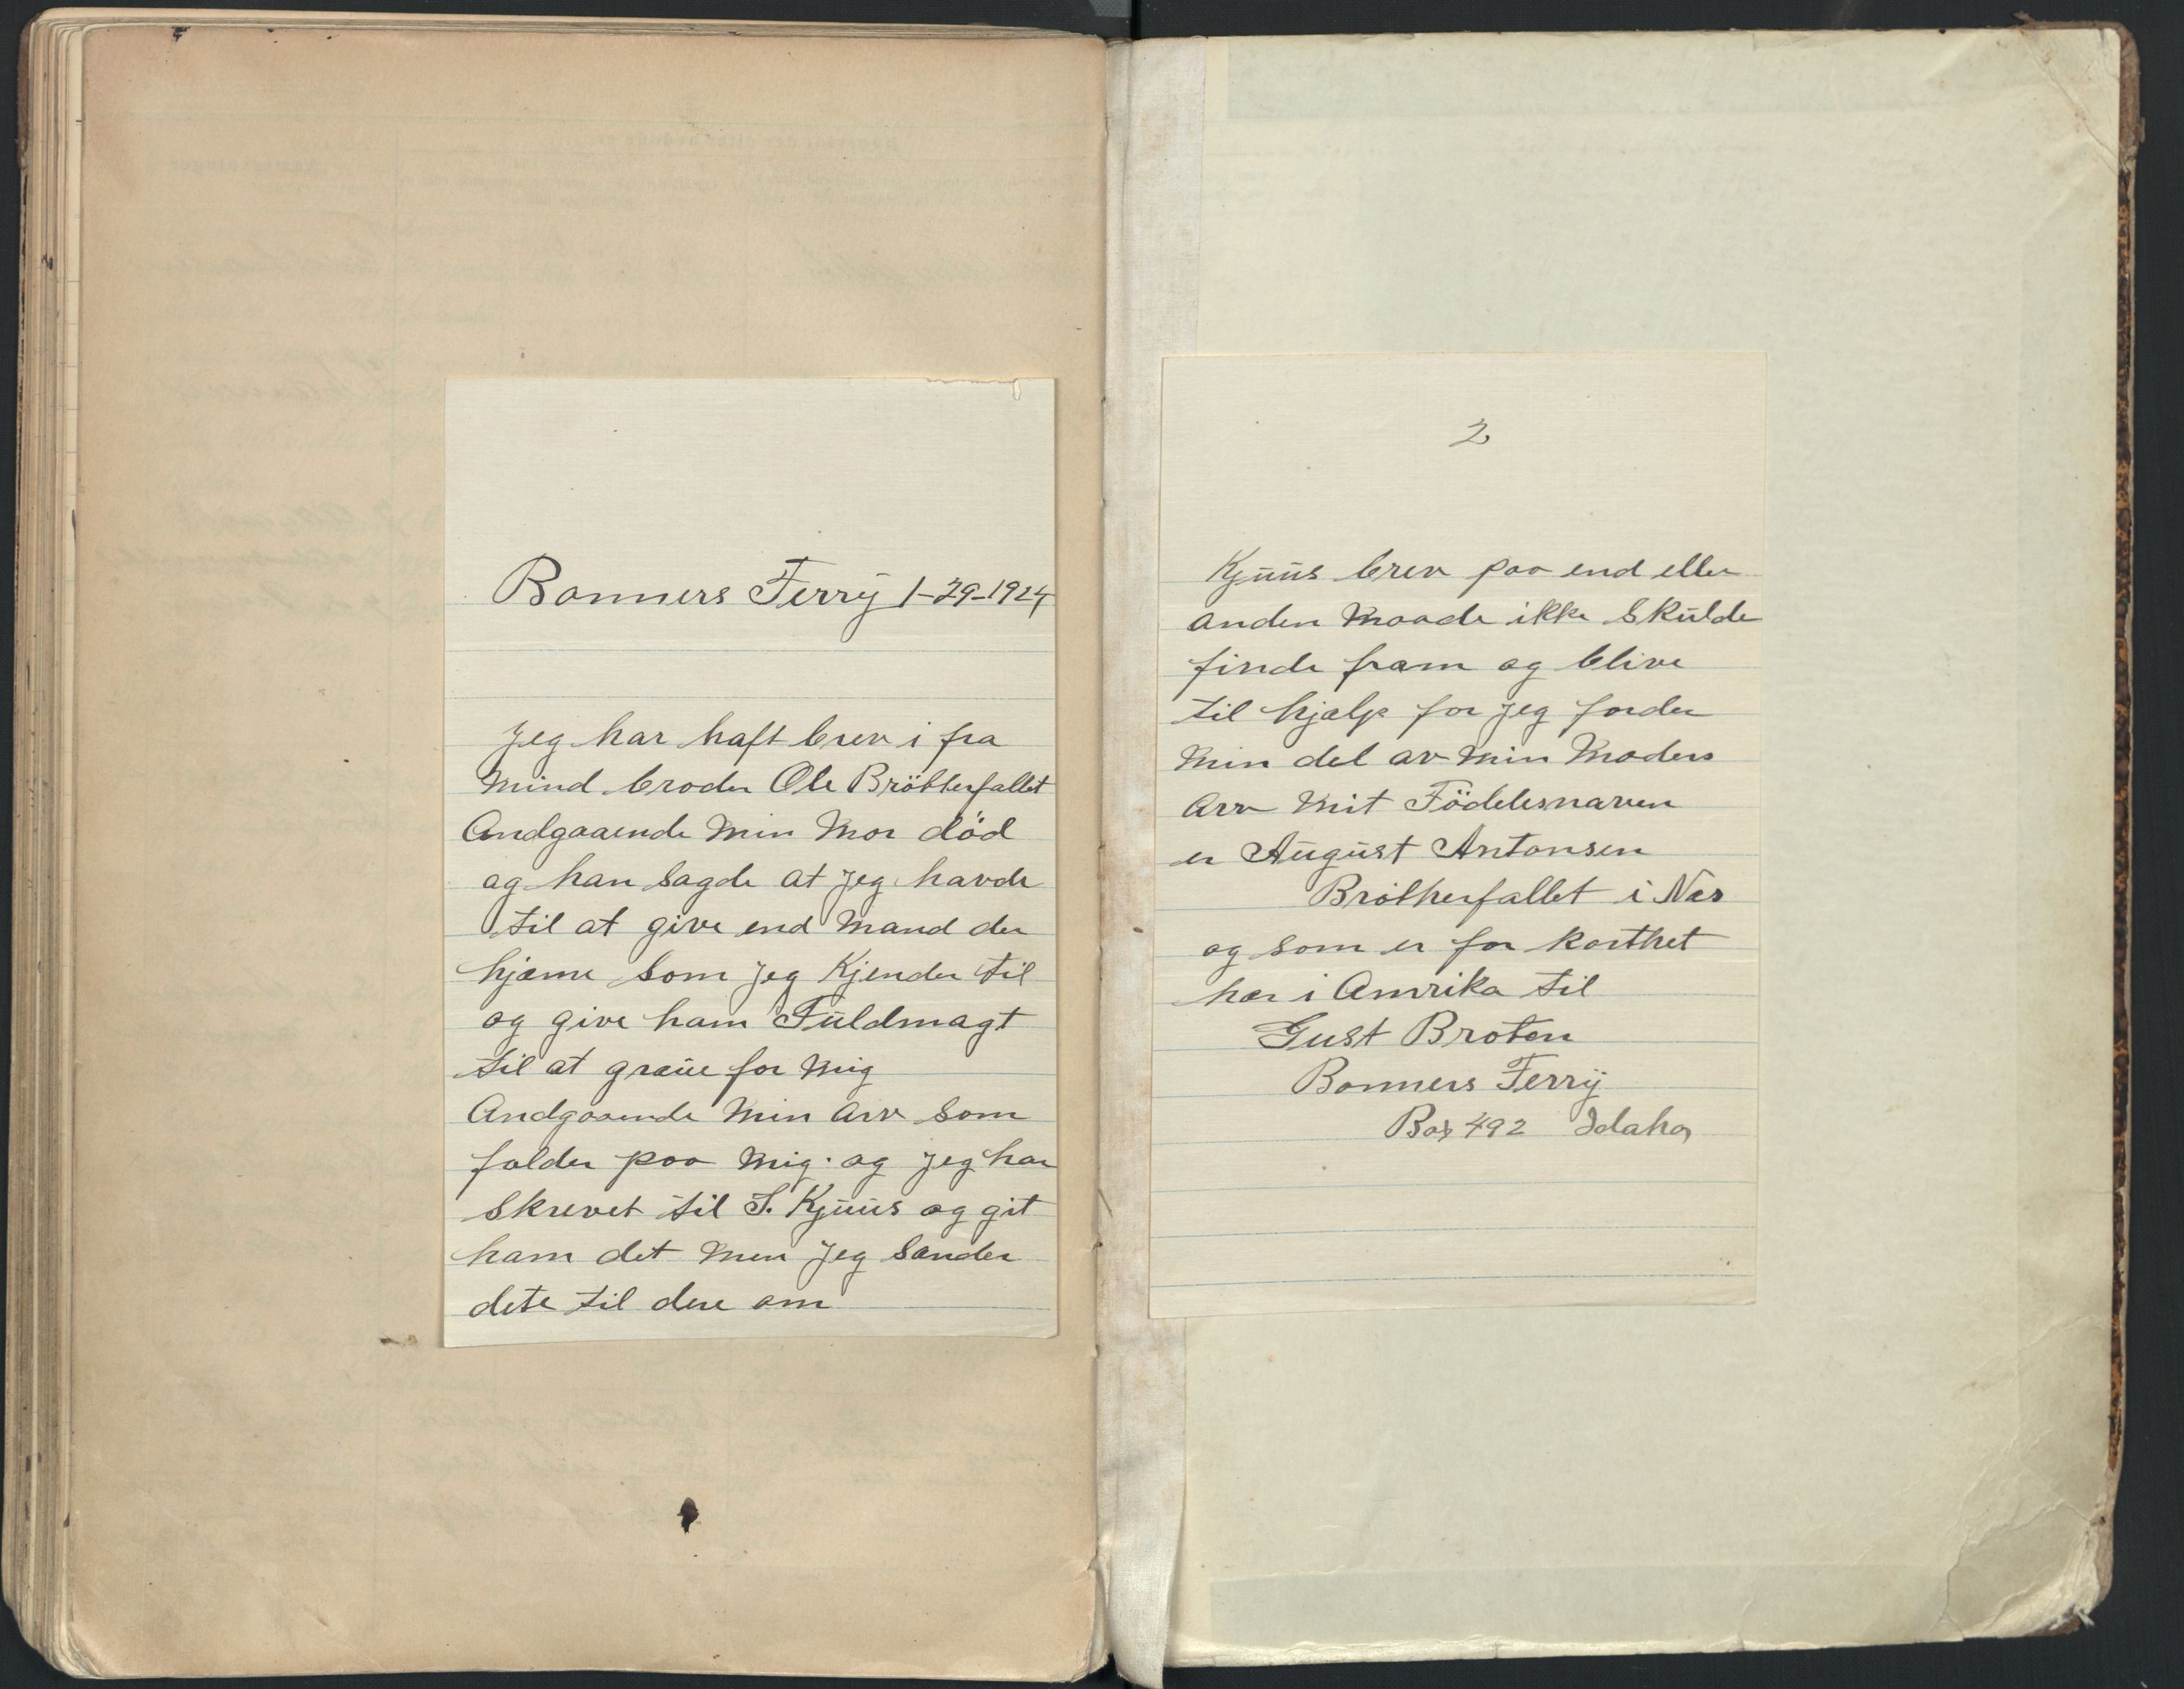 Bonners Ferry 1-29-1924
Jeg har haft brev i fra
Mind broder Ole Brötterfallet
Andgaaende Min Mor död
og han sagde at jeg havde
til at give end Mand der
hjæme som jeg Kjender til
og give ham Fuldmagt
til at græie for Mig
Andgaaende Min Arv som
falder paa Mig. og jeg har
skrevet til S. Kjuus og git
ham det Men jeg sander
dete til dere om
2
Kjuus brev paa end eller
anden Maade ikke skulde
finde fram og blive
til hjælp for jeg forder
Min del av Min Moders
Arv Mit Födelesnaven
er August Antonsen
Brötherfallet i Næs
og som er for korthet
hær i Amrika til
Gust Broten
Bonners Ferry
Box 492 Idaho